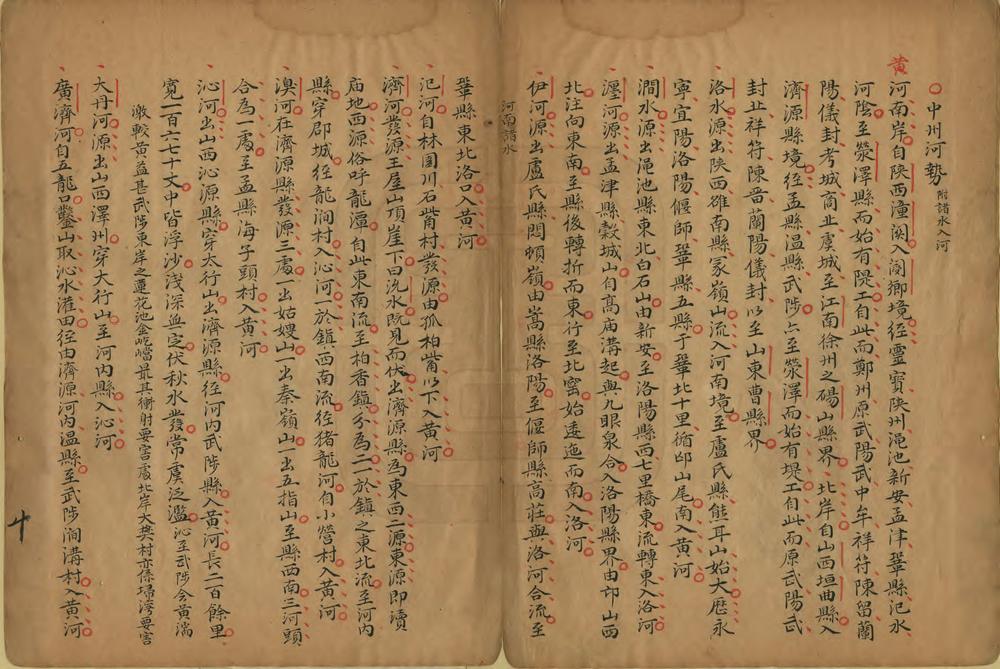 黃
○中州河勢 附諸水入河
河南岸自陝西潼関入閿鄉境經靈寶陝州澠池新安孟津鞏縣汜水
河陰至滎澤縣而始有隄工自此而鄭州原武陽武中牟祥符陳留蘭
陽儀封考城商丘虞城至江南徐州之碭山縣界北岸自山西垣曲縣入
濟源縣境徑孟縣温縣武陟亦至滎澤而始有堤工自此而原武陽武
封丘祥符陳晋蘭陽儀封以至山東曹縣界
洛水源出陝西雒南縣冢嶺山流入河南境至盧氏縣熊耳山始大歷永
寧宜陽洛陽偃師鞏縣五縣于鞏北十里循邙山尾南入黃河
澗水源出澠池縣東北白石山由新安至洛陽縣西七里橋東流轉東入洛河
瀍河源出孟津縣穀城山自高庙溝起與九眼泉合入洛陽縣界由邙山西
北注向東南至縣後轉折而東行至北窰始逶迤而南入洛河
伊河源出盧氏縣悶頓嶺由嵩縣洛陽至偃師縣高庄與洛河合流至
河南諸水
鞏縣東北洛口入黃河
汜河自林園川石觜村發源由孤柏觜以下入黃河
濟河發源王屋山頂崖下曰沇水既見而伏出濟源縣為東西二源東源即瀆
庙地西源俗呼龍潭自此東南流至柏香鎮分為二一於鎮之東北流至河内
縣穿郡城徑龍澗村入沁河一於鎮西南流徑猪龍河自小營村入黃河
溴河在濟源縣發源三處一出姑嫂山一出秦嶺山一出五指山至縣西南三河頭
合為一處至孟縣海子頭村入黃河
沁河出山西沁源縣穿太行山出濟源縣徑河内武陟縣入黃河長二百餘里
寬一百六七十丈中皆浮沙淺深無定伏秋水發常虞泛濫沁至武陟会黃湍
激較黃益甚武陟東岸之蓮花池金屹壋最其衝射要害處北岸大樊村亦係埽湾要害
大丹河源出山西澤州穿大行山至河内縣入沁河
廣濟河自五龍口鑿山取沁水灌田徑由濟源河内温縣至武陟澗溝村入黃河
十